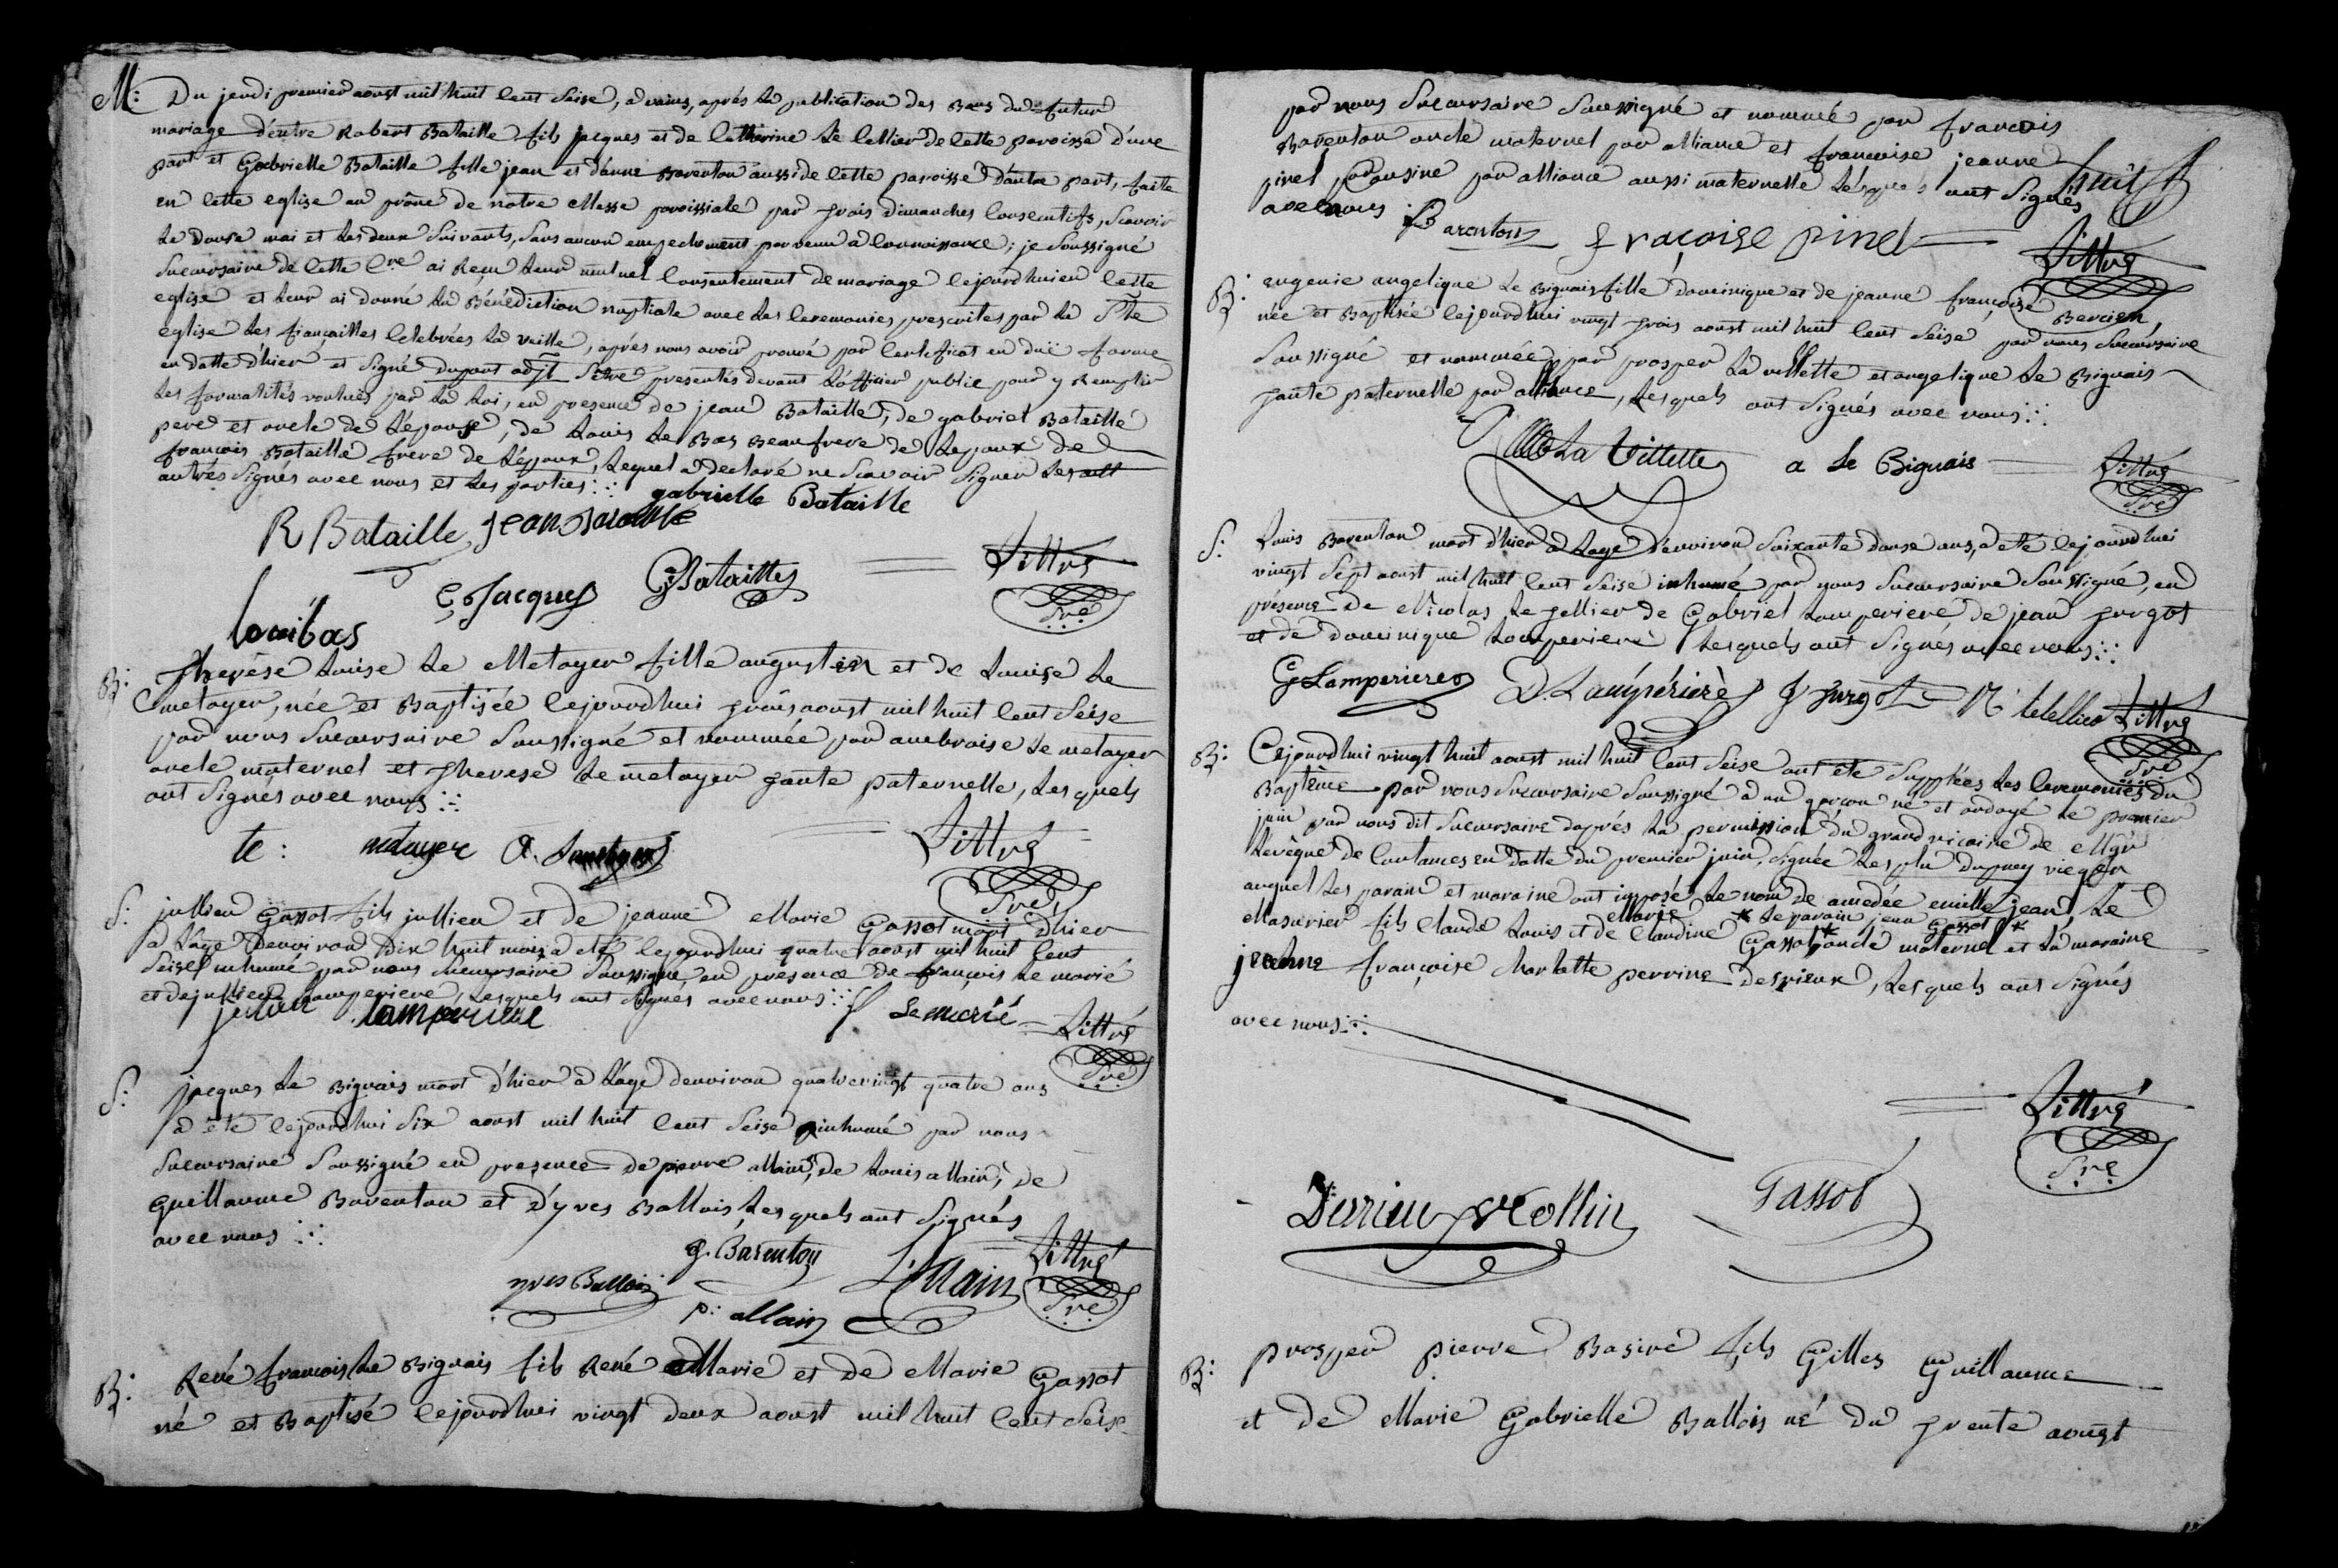 M: Du jeudi premier aoust mil huit Cent Seise, a vains, aprés La publication des Bans du futur
mariage d'entre Robert Bataille fils jacques et de Catherine Le tellier de Cette paroisse d'une
part et Gabrielle Bataille fille jean et d'anne Barenton aussi de Cette paroisse d'autre part, faitte
en Cette eglise au prône de notre Messe paroissiale par trois dimanches Consecutifs, Scavoir
Le douse mai et Les deux Suivants, Sans aucun empechement parvenu a Connoissance; je Soussigné
Sucursaire de Cette Cne ai Reçu Leur mutuel Consentement de mariage Cejourdhui en Cette
eglise et Leur ai donné La Bénédiction nuptiale avec Les Ceremonies prescrites par La Ste
eglise Les fiançailles Celebrées La Veille, aprés nous avoir prouvé par Certificat en duë forme
en datte d'hier et Signé dupont adjt S'etre presentés devant L'officier public pour y Remplir
Les formalités voulues par La Loi, en presence de jean Bataille, de gabriel Bataille
pere et oncle de L'épouse, de Louis Le Bas Beaufrere de L'epoux de
françois Bataille frere de L'époux, Lequel a declaré ne Scavoir Signer Les
autres Signés avec nous et Les parties:
gabrielle Bataille
R Bataille jean Bataille
G Bataille Littré
Jacques Sre
Louibas
B: therése Louise Le Metayer fille augustin et de Louise Le
metayer, née et Baptisée Cejourdhui trois aoust mil huit Cent Seise
par nous Sucursaire Soussigné et nommée par ambroise Le metayer
oncle maternel et therese Le metayer tante paternelle, Les quels
ont Signés avec nous:
te: metayer A. Littré
Sre
S: jullien Gassot fils jullien et de jeanne Marie Gassot mort d'hier
a L'âge denviron dix huit mois a eté Cejourdhui quatre aoust mil huit Cent
Seise inhumé par nous Sucursaire Soussigné, en presence de françois Le marié
et de jullien Lamperiere, Lesquels ont Signés avec nous:
julien lamperiere f Lemarié Littré
Sre
S: jacques Le Biguais mort d'hier a L'âge denviron quatre vingt quatre ans
a été Cejourdhui Six aoust mil huit Cent Seise inhumé par nous
Sucursaire Soussigné en presence de pierre allain, de Louis allain, de
Guillaume Barenton et d'yves Ballois Lesquels ont Signés
avec nous:
g. Barenton Littré
yves Ballois L Allain Sre
p: allain
B: René françois Le Biguais fils René Marie et de Marie Gassot
né et Baptisé Cejourdhui vingt deux aoust mil huit Cent Seise
par nous Sucursaire Soussigné et nommé par francois
Barenton oncle maternel par alliance et françoise jeanne
pinel Cousine par alliance aussi maternelle Lesquels ont Signés
avec nous: Barenton fraçoise pinel Littré
B: eugenie angelique Le Biguais fille dominique et de jeanne françoise Bercien
née et Baptisée Cejourdhui vingt trois aoust mil huit Cent Seise par nous Sucursaire
Soussigné et nommée par prosper La villette et angelique Le Biguais
tante paternelle par alliance, Lesquels ont Signés avec nous:
La Villette a Le Biguais Littré
Sre
S: Louis Barenton mort d'hier a L'age d'environ Soixante douse ans, a eté Cejourdhui
vingt Sept aoust mil huit Cent Seise inhumé par nous Sucursaire Soussigné, en
présence de Nicolas Le tellier de Gabriel Lamperiere de jean turgot
et de dominique Lamperiere Lesquels ont Signés avec nous:
G Lamperiere D. Lampérière J turgot N letellier Littré
Sre
B: Cejourdhui vingt huit aoust mil huit Cent Seise ont été Supplées Les Ceremonies du
Baptême par nous Sucursaire Soussigné a un garçon né et ondoyé Le premier
juin par nous dit Sucursaire daprés La permission du grand vicaire de Mgr
L'evêque de Coutances en datte du premier juin, Signée Lesplu dupuey vic gen
auquel Les parain et maraine ont impposé Le nom de amedée emille jean Le
Marie * Le parain jean Gassot *
Masurier fils Claude Louis et de Claudine Gassot * oncle maternel et La maraine
jeanne françoise charlotte perrine desrieux, Lesquels ont Signés
avec nous:
Littré
Sre
Derrieu Collin Gassot
B: prosper pierre Basire fils Gilles Guillaume
et de Marie Gabrielle Ballois né du trente aoust